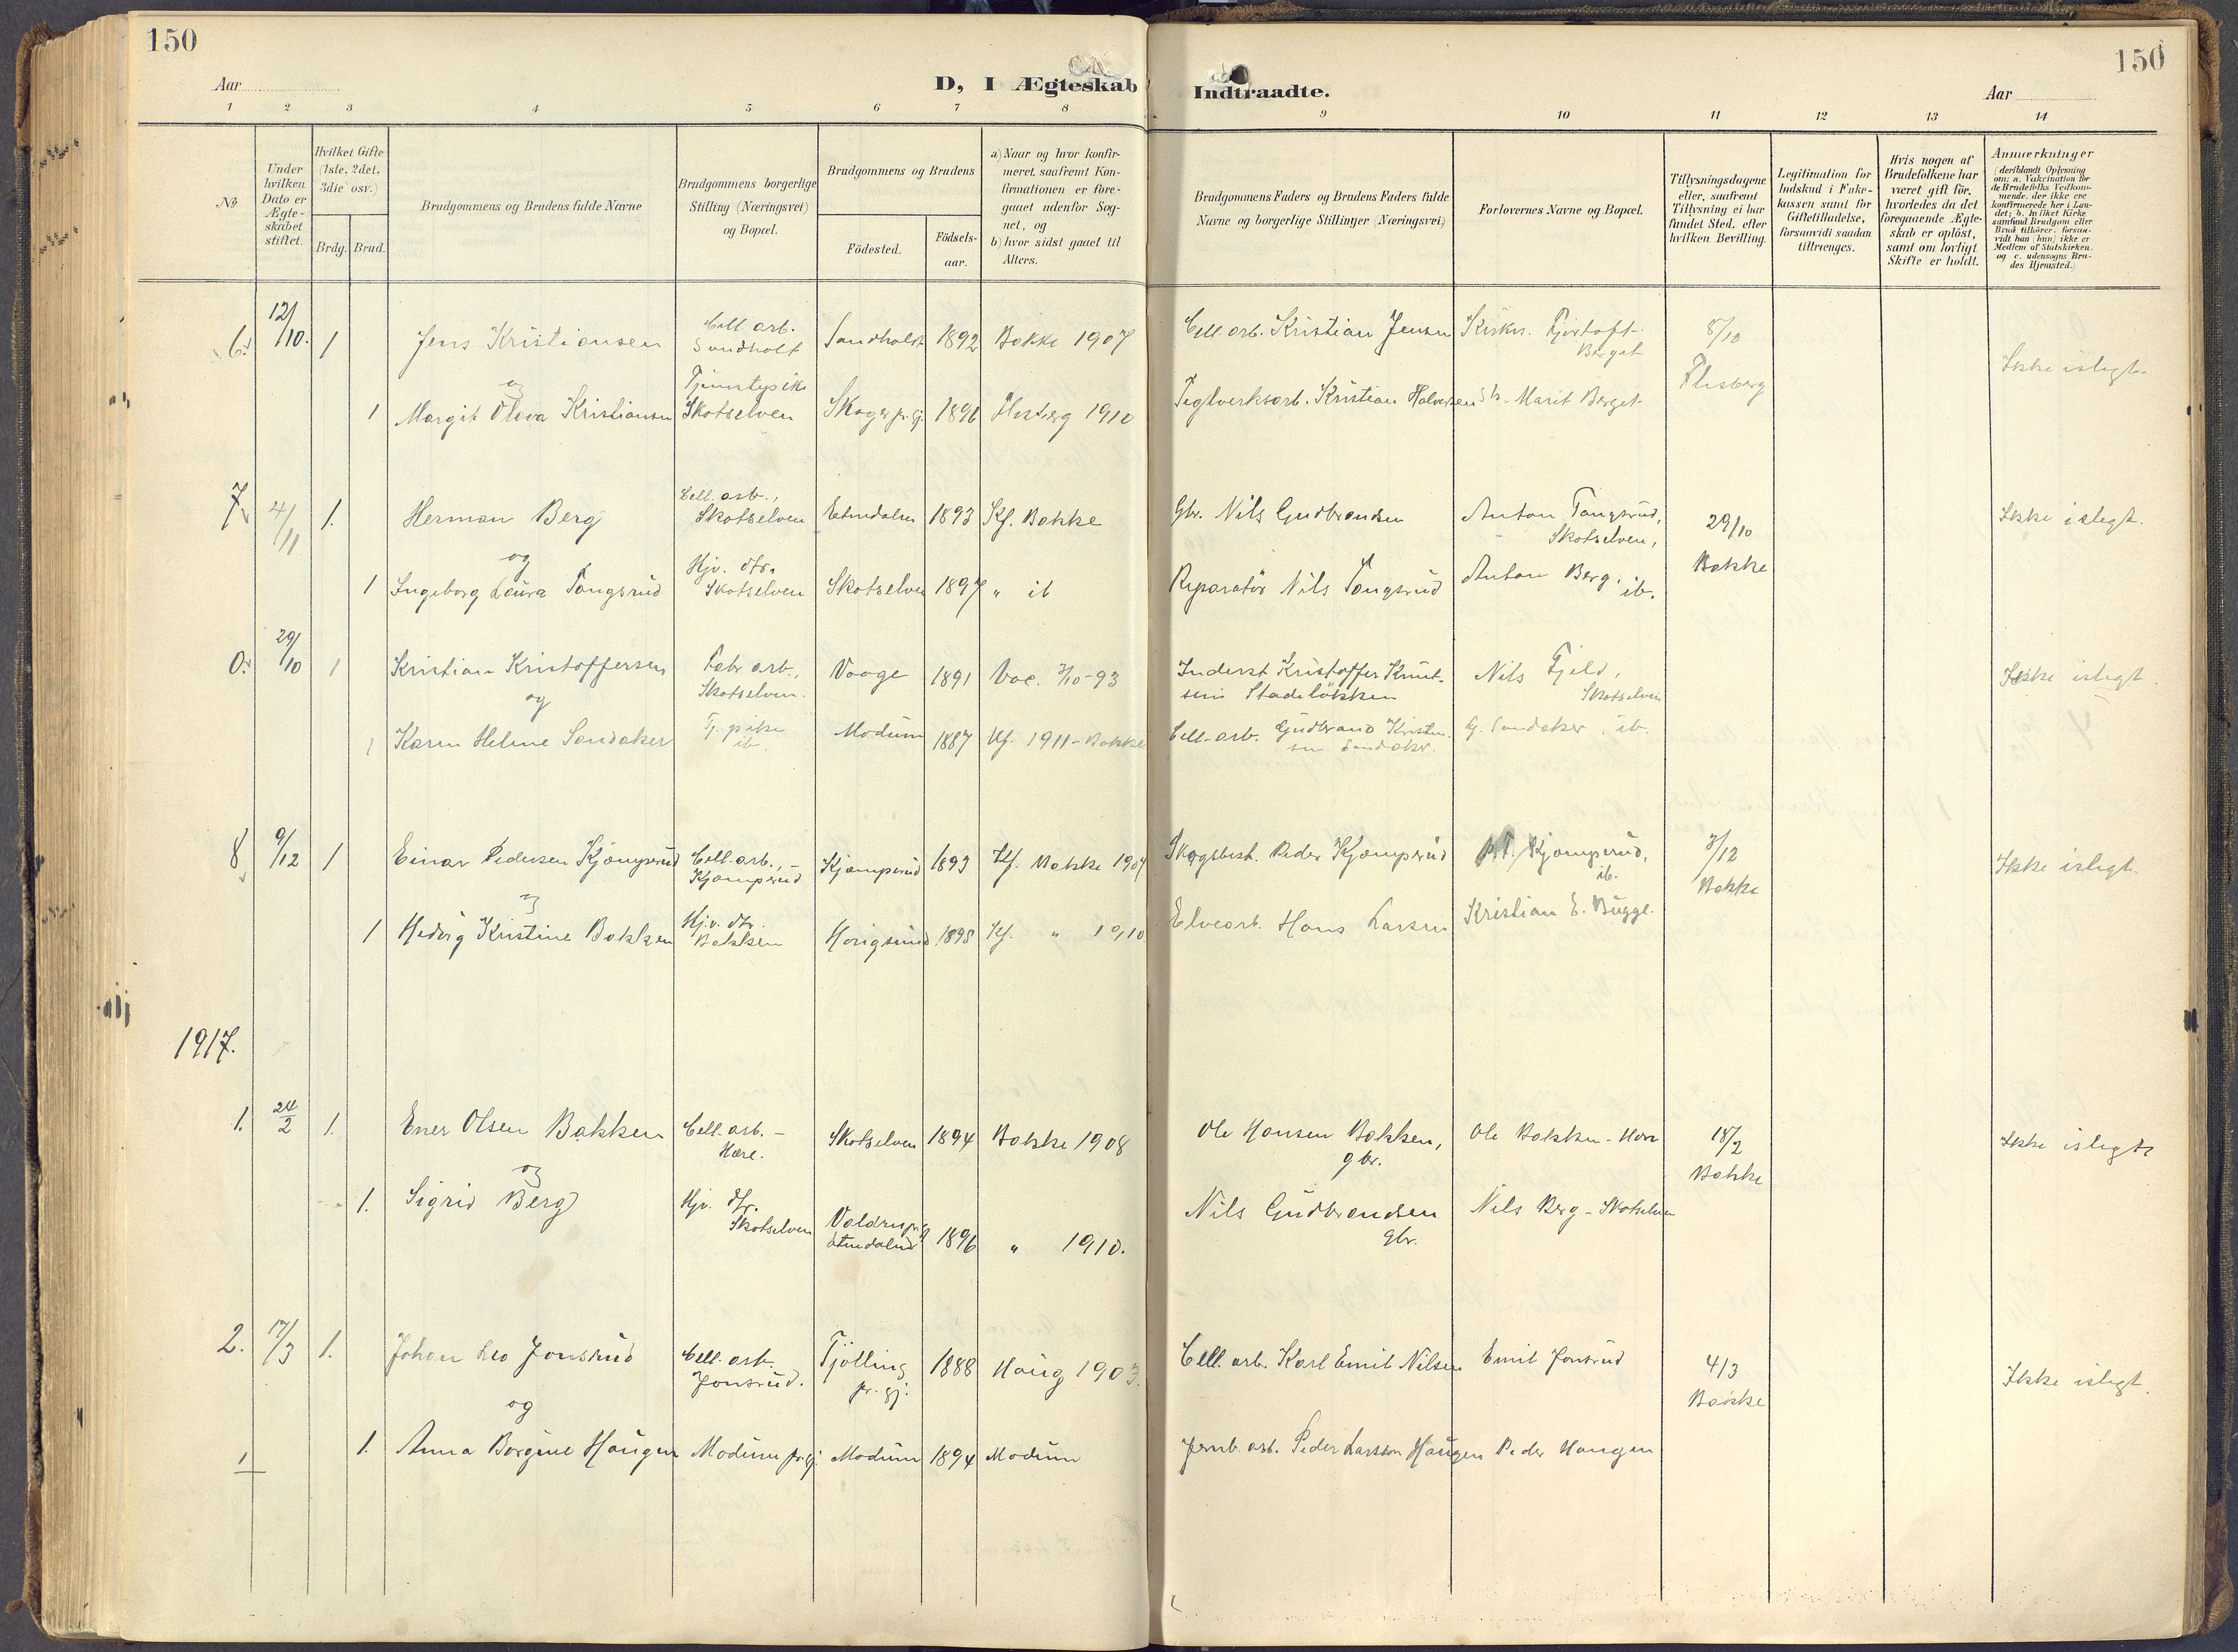 150
150
Aar
D, I Ægteskab Indtraadte.
Aar
1 2 3 4 5 6 7 8 9 10 11 12 13 14
No
Under hvilken Dato er Ægteskabet stiftet.
Hvilket Gifte (1ste, 2det, 3die osv.)
Brdg. Brud.
Brudgommens og Brudens fulde Navne
Brudgommens borgerlige Stilling (Næringsvei) og Bopæl.
Brudgommens og Brudens
Födested.
Födsels-aar.
a) Naar og hvor konfir-
meret, saafremt Kon-
firmationen er fore-
gaaet udenfor Sog-
net, og
b) hvor sidst gaaet til
Alters.
Brudgommens Faders og Brudens Faders fulde
Navne og borgerlige Stillinger (Næringsvei)
Forlovernes Navne og Bopæl.
Tillysningsdagene
eller, saafremt
Tillysning ei har
fundet Sted, efter
hvilken Bevilling.
Legitimation for
Indskud i Enke-
kassen samt for
Giftetilladelse,
forsaavidt saadan
tiltrænges.
Hvis nogen af
Brudefolkene har
været gift för,
hvorledes da det
foregaaende Ægte-
skab er oplöst,
samt om lovligt
Skifte er holdt.
Anmærkninger
(deriblandt Oplysning
om: a. Vakcination for
de Brudefolks Vedkom-
mende, der ikke ere
konfirmerede her i Lan-
det; b. hvilket Kirke-
samfund Brudgom eller
Brud tilhörer, forsaa-
vidt han (hun) ikke er
Medlem af Statskirken,
og c. udensogns Bru-
des Hjemsted.)
6. 12/10. 1 Jens Kristiansen Cell. arb. Sundholt Sandholt 1892 Bakke 1907 Cell. arb. Kristian Jensen Kirkes. Fjertoft Berget 8/10 Flesberg Ikke i slegt.
og
1 Margit Oleva Kristiansen Tjenestepike Skotselven Skoger pr.gj. 1896 Flesberg 1910 Teglverksarb. Kristian Halvorsen Marit Berget
7 4/11 1. Herman Berg Cell. arb., Skotselven Etnedalen 1893 Kf. Bakke Gbr. Nils Gudbrandsen Anton Tangsrud, Skotselven, 29/10 Bakke Ikke i slegt.
og
1 Ingeborg Laura Tangsrud Hjv. dtr. Skotselven Skotselven 1897 " ib Reparatör Nils Tangsrud Anton Berg, ib.
0. 29/10 1 Kristian Kristoffersen Fabr. arb., Skotselven. Vaage 1891 Vac. 3/10-93 Inderst Kristoffer Knut-
sen Stadelökken Nils Fjeld, Skotselven Ikke i slegt.
og
1 Karen Helene Sandaker Tj. pike ib. Modum 1887 Kf. 1911 - Bakke Cell-arb. Gudbrand Kristen-
sen Sandaker. G. Sandaker, ib.
8 9/12 1 Einar Pedersen Kjömperud Cell-arb., - Kjömperud Kjömperud 1893 Kf. Bakke 1907 Skogsbest. Peder Kjömperud P.T. Kjömperud, ib. 3/12 Bakke Ikke i slegt.
og
1 Hedvig Kristine Bakken Hjv. dtr. Bakken 1898 Kf. " 1910 Elvearb. Hans Larsen Kristian E. Bugge.
1917.
1. 24/2 1. Ener Olsen Bakken Cell. arb. - Hære. Skotselven 1894 Bakke 1908 Ole Hansen Bakken, gbr. Ole Bakken - 18/2 Bakke Ikke i slegt
og
1. Sigrid Berg Hjv. dtr. Skotselven Etnedalen 1896 " 1910. Nils Gudbrandsen gbr. Nils Berg - Skotselven
2. 17/3 1. Johan Leo Jonsrud Cell. arb. Jonsrud. Tjölling pr. gj. 1888 Haug 1903. Cell. arb. Karl Emil Nilsen Emil Jonsrud 4/3 Bakke Ikke i slegt.
og
1. Anna Borgine Haugen Modum pr.gj. Modum 1894 Modum Jernb. arb. Peder Larsson Haugen Peder Haugen
1